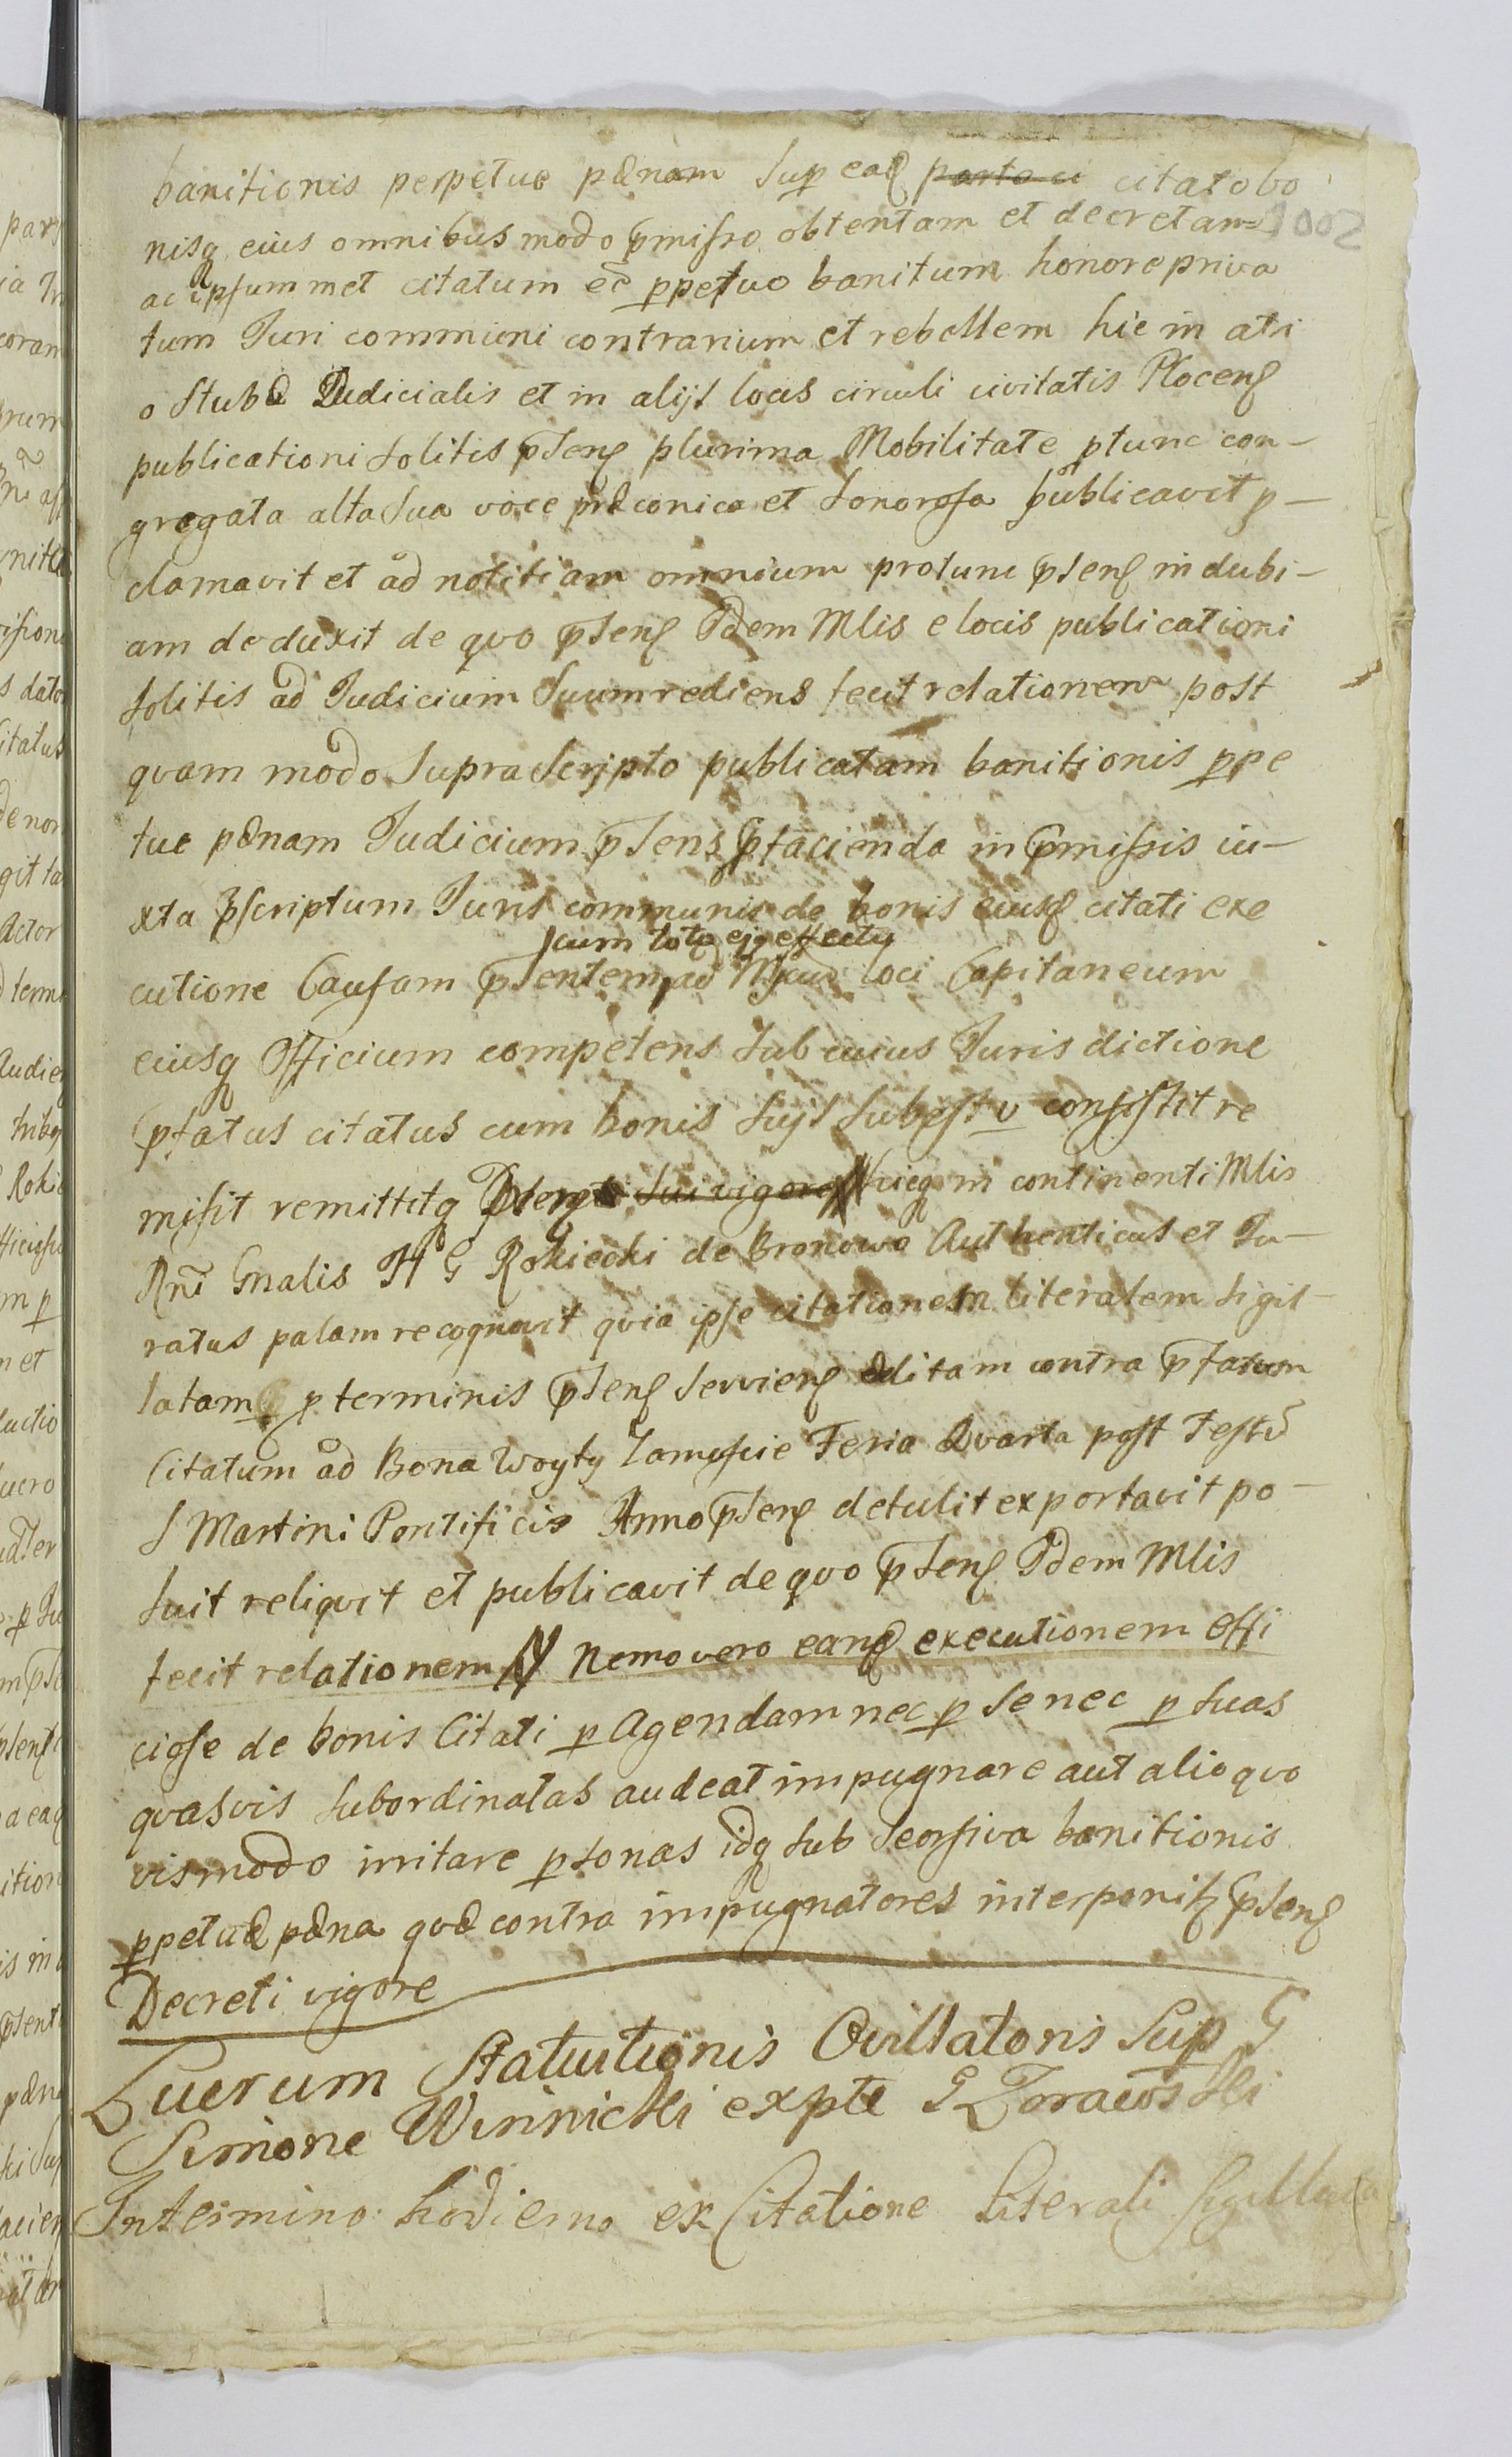 banitionis perpetue pœnam Sup ead parte ci citato bo
nisq eius omnibus modo pmisso obtentam et decretam 1002
ac ipsummet citatum ec ppetuo banitum honore priva
tum Iuri communi contrarium et rebellem hic in atri
o Stubæ Iudicialis et in alijs locis circuli civitatis Plocens
publicationi Solitis pSens plurima Nobilitate ptunc con-
gregata alta Sua voce præconica et Sonorosa publicavit p-
clamavit et ad notitiam omnium protunc pSens indubi-
am deduxit de qvo pSens Idem Mlis e locis publicationi
Solitis ad Iudicium Suum rediens fecit relationem post
qvam modo Supra Scripto publicatam banitionis ppe
tue pœnam Iudicium pSens Sptacienda in pmissis iu-
xta pscriptum Iuris communis de bonis eiusd citati exe
cum toto ejq effectu
cutione Causam pSentem ad loci Capitaneum
eiusq Officium competens Sub cuius Iuris dictione
pfatus citatus cum bonis Suis Subest v consistit re
misit remittitq pSens Sui vigore Hicq in continenti Mlis
Rni Gnalis H G Rokiecki de Bronowo Authenticus et Iu-
ratus palam recognovit qvia ipse citationem literalem Sigil-
latam p terminis pSens Serviens editam contra pfatum
Citatum ad Bona Woyty Zamoscie Feria Qvarta post Festu
S Martini Pontificis Anno pSens detulit exportavit po-
Suit reliqvit et publicavit de qvo pSens Idem Mlis
fecit relationem Nemo vero eand executionem offi
ciose de bonis Citati p Agendam nec p Se nec p Suas
qvasvis Subordinatas audeat impugnare aut alio qvo
vismodo irritare pSonas idq Sub Seorsiva banitionis
ppetuæ pœna qvæ contra impugnatores interponitr pSens
Decreti vigore
Lucrum Statuitionis Qvillatoris Sup G
Simone Winnicki ex pte G Zorawski
In termino hodierno ex Citatione Literali Sigillata